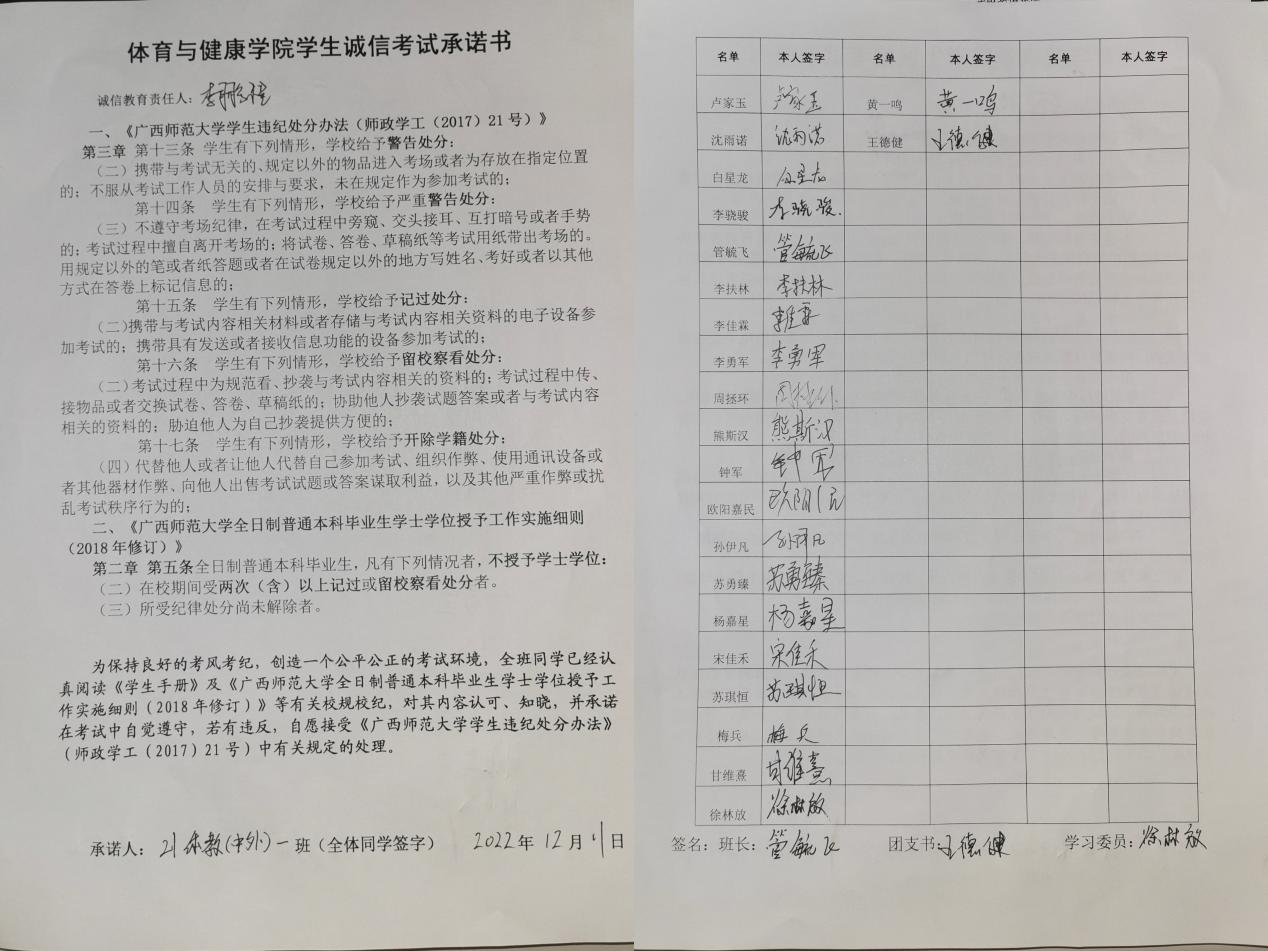 体育与健康学院学生诚信考试承诺书
诚信教育责任人：
一、《广西师范大学学生违纪处分办法（师政学工（2017）21号）》
第三章 第十三条 学生有下列情形，学校给予警告处分：
（二）携带与考试无关的、规定以外的物品进入考场或者为存放在指定位置
的；不服从考试工作人员的安排与要求，未在规定作为参加考试的；
第十四条 学生有下列情形，学校给予严重警告处分：
（三）不遵守考场纪律，在考试过程中旁窥、交头接耳、互打暗号或者手势
的；考试过程中擅自离开考场的；将试卷、答卷、草稿纸等考试用纸带出考场的。
用规定以外的笔或者纸答题或者在试卷规定以外的地方写姓名、考好或者以其他
方式在答卷上标记信息的；
第十五条 学生有下列情形，学校给予记过处分：
（二）携带与考试内容相关材料或者存储与考试内容相关资料的电子设备参
加考试的；携带具有发送或者接收信息功能的设备参加考试的；
第十六条 学生有下列情形，学校给予留校察看处分：
（二）考试过程中为规范看、抄袭与考试内容相关的资料的；考试过程中传、
接物品或者交换试卷、答卷、草稿纸的；协助他人抄袭试题答案或者与考试内容
相关的资料的；胁迫他人为自己抄袭提供方便的；
第十七条 学生有下列情形，学校给予开除学籍处分：
（四）代替他人或者让他人代替自己参加考试、组织作弊、使用通讯设备或
者其他器材作弊、向他人出售考试试题或答案谋取利益，以及其他严重作弊或扰
乱考试秩序行为的；
二、《广西师范大学全日制普通本科毕业生学士学位授予工作实施细则
（2018年修订）》
第二章 第五条全日制普通本科毕业生，凡有下列情况者，不授予学士学位：
（二）在校期间受两次（含）以上记过或留校察看处分者。
（三）所受纪律处分尚未解除者。
为保持良好的考风考纪，创造一个公平公正的考试环境，全班同学已经认
真阅读《学生手册》及《广西师范大学全日制普通本科毕业生学士学位授予工
作实施细则（2018年修订）》等有关校规校纪，对其内容认可、知晓，并承诺
在考试中自觉遵守，若有违反，自愿接受《广西师范大学学生违纪处分办法》
（师政学工（2017）21号）中有关规定的处理。
承诺人：21体教（中外）一班（全体同学签字） 2022年12月 日
名单 本人签字 名单 本人签字 名单 本人签字
卢家玉 卢家玉 黄一鸣 黄一鸣
沈雨诺 沈雨诺 王德健 王德健
白星龙 白星龙
李骁骏 李骁骏
管毓飞 管毓飞
李扶林 李扶林
李佳霖 李佳霖
李勇军 李勇军
周拯环
熊斯汉 熊斯汉
钟军 钟军
欧阳嘉民 欧阳
孙伊凡 孙伊凡
苏勇臻 苏勇臻
杨嘉星 杨嘉星
宋佳禾 宋佳禾
苏琪恒 苏琪恒
梅兵 梅兵
甘维熹 甘维熹
徐林放 徐林放
签名：班长：管毓飞 团支书：王德健 学习委员：徐林放